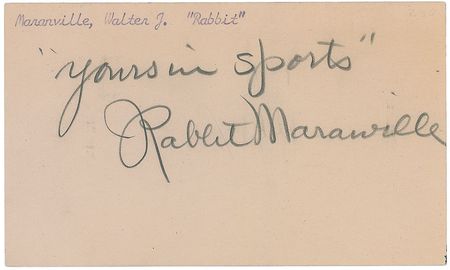 Maranville, Walter J. "Rabbit"
"yours in sports"
Rabbit Maranville